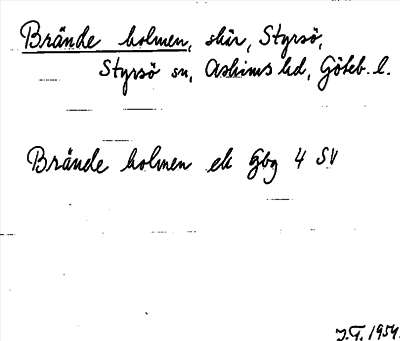 Brände holmen, skär, Styrsö,
Styrsö sn, Askims hd, Göteb. l.
Brände holmen ek Gbg 4 SV
J.T. 1954.